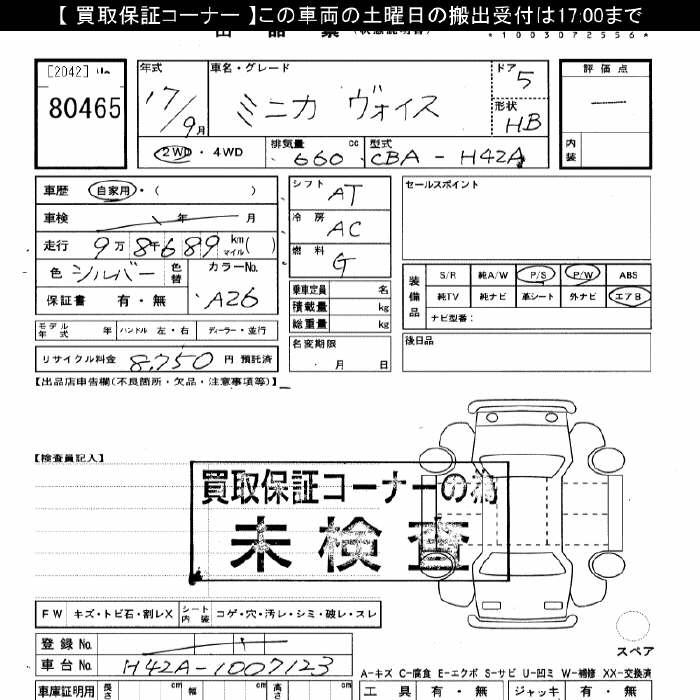 【 買取保証コーナー 】この車両の土曜日の搬出受付は17:00まで
*1003072556*
[2042]
80465
年式
17/9月
車名・グレード
ミニカ ヴォイス
ドア 5
形状 HB
評価点
内装
2WD ・ 4WD
排気量 660 cc
型式 CBA - H42A
車歴 自家用・( )
車検 年 月
走行 9万8千689 km マイル( )
色 シルバー 色替
カラーNo. A26
保証書 有・無
シフト AT
冷房 AC
燃料 G
乗車定員 名
積載量 kg
総重量 kg
名変期限
月 日
セールスポイント
装備品
S/R 純A/W P/S P/W ABS
純TV 純ナビ 革シート 外ナビ エアB
ナビ型番:
後日品
モデル年式 年 ハンドル 左・右 ディーラー・並行
リサイクル料金 8,750 円 預託済
【出品店申告欄(不良箇所・欠品・注意事項等)】
【検査員記入】
買取保証コーナーの為
未検査
FW キズ・トビ石・割レX シート内装 コゲ・穴・汚レ・シミ・破レ・スレ
スペア
登録No.
車台No. H42A-1007123
A-キズ C-腐食 E-エクボ S-サビ U-凹ミ W-補修 XX-交換済
車庫証明用 長さ cm 幅 cm 高さ cm
工具 有・無 ジャッキ 有・無